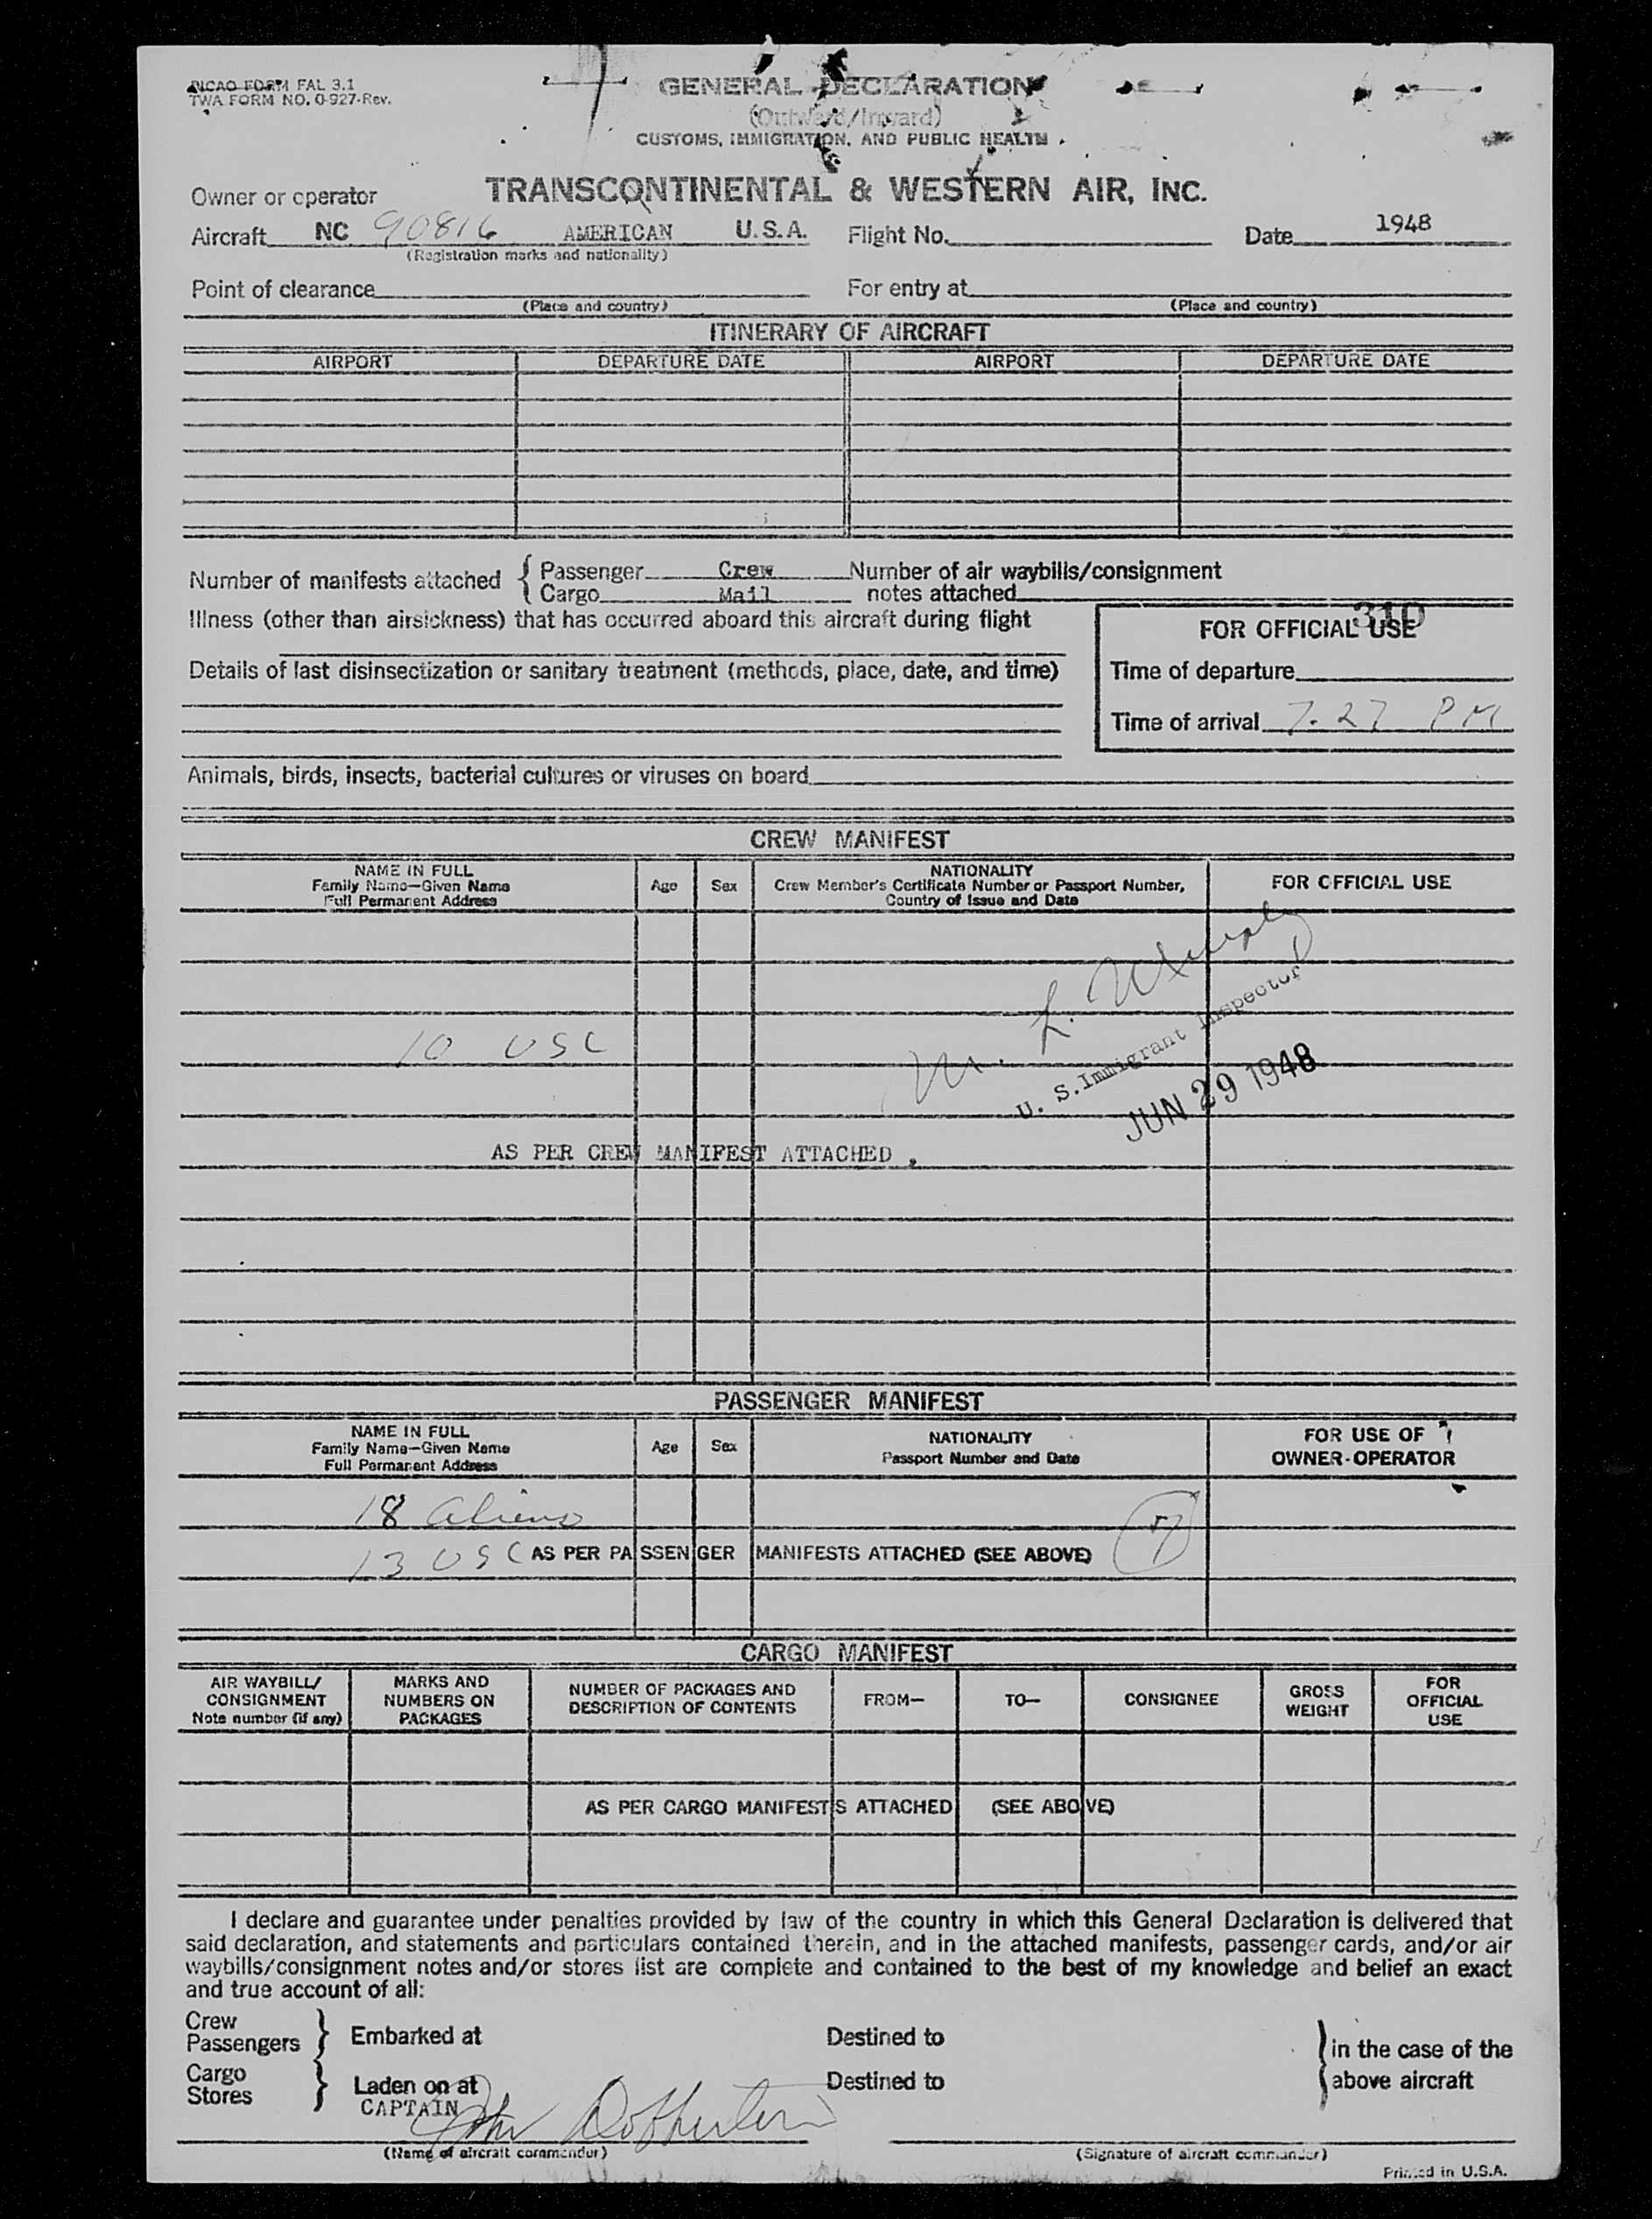 PICAO FORM FAL 3.1
TWA FORM NO. 0-927-Rev.
GENERAL DECLARATION
(Outward/Inward)
CUSTOMS, IMMIGRATION, AND PUBLIC HEALTH
Owner or operator TRANSCONTINENTAL & WESTERN AIR, INC.
Aircraft NC 90816 AMERICAN U.S.A. Flight No. Date 1948
(Registration marks and nationality)
Point of clearance For entry at
(Place and country) (Place and country)
ITINERARY OF AIRCRAFT
AIRPORT DEPARTURE DATE AIRPORT DEPARTURE DATE
Number of manifests attached { Passenger Crew Number of air waybills/consignment
Cargo Mail notes attached
Illness (other than airsickness) that has occurred aboard this aircraft during flight
310
FOR OFFICIAL USE
Details of last disinsectization or sanitary treatment (methods, place, date, and time)
Time of departure
Time of arrival 7.27 PM
Animals, birds, insects, bacterial cultures or viruses on board
CREW MANIFEST
NAME IN FULL
Family Name—Given Name
Full Permanent Address
Age Sex
NATIONALITY
Crew Member's Certificate Number or Passport Number,
Country of Issue and Date
FOR OFFICIAL USE
M. L.
U. S. Immigrant Inspector
10 USC
JUN 29 1948
AS PER CREW MANIFEST ATTACHED .
PASSENGER MANIFEST
NAME IN FULL
Family Name—Given Name
Full Permanent Address
Age Sex
NATIONALITY
Passport Number and Date
FOR USE OF
OWNER-OPERATOR
18 aliens
13 USC AS PER PASSENGER MANIFESTS ATTACHED (SEE ABOVE)
CARGO MANIFEST
AIR WAYBILL/
CONSIGNMENT
Note number (if any)
MARKS AND
NUMBERS ON
PACKAGES
NUMBER OF PACKAGES AND
DESCRIPTION OF CONTENTS
FROM—
TO—
CONSIGNEE
GROSS
WEIGHT
FOR
OFFICIAL
USE
AS PER CARGO MANIFESTS ATTACHED (SEE ABOVE)
I declare and guarantee under penalties provided by law of the country in which this General Declaration is delivered that
said declaration, and statements and particulars contained therein, and in the attached manifests, passenger cards, and/or air
waybills/consignment notes and/or stores list are complete and contained to the best of my knowledge and belief an exact
and true account of all:
Crew
Passengers } Embarked at Destined to } in the case of the
Cargo
Stores } Laden on at Destined to above aircraft
CAPTAIN John
(Name of aircraft commander) (Signature of aircraft commander)
Printed in U.S.A.